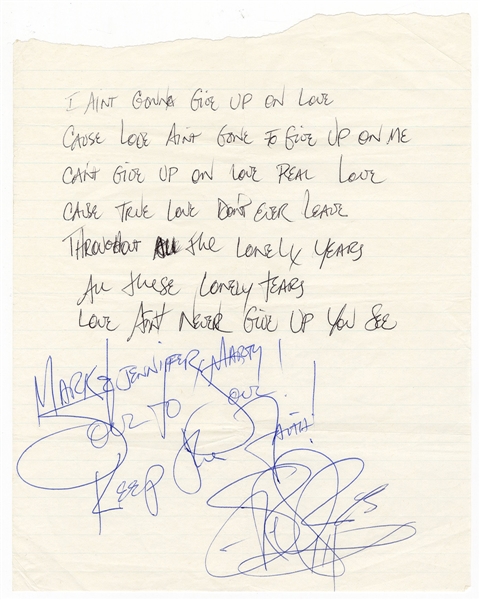 I AINT GONNA GIVE UP ON LOVE
CAUSE LOVE AINT GONE TO GIVE UP ON ME
CAN'T GIVE UP ON LOVE REAL LOVE
CAUSE TRUE LOVE DON'T EVER LEAVE
THROUGHOUT All the LONELY YEARS
All these LONELY TEARS
LOVE AIN'T NEVER GIVE UP YOU SEE
MARK & JENNIFER & MARTY!
TO
Keep the FAITH!